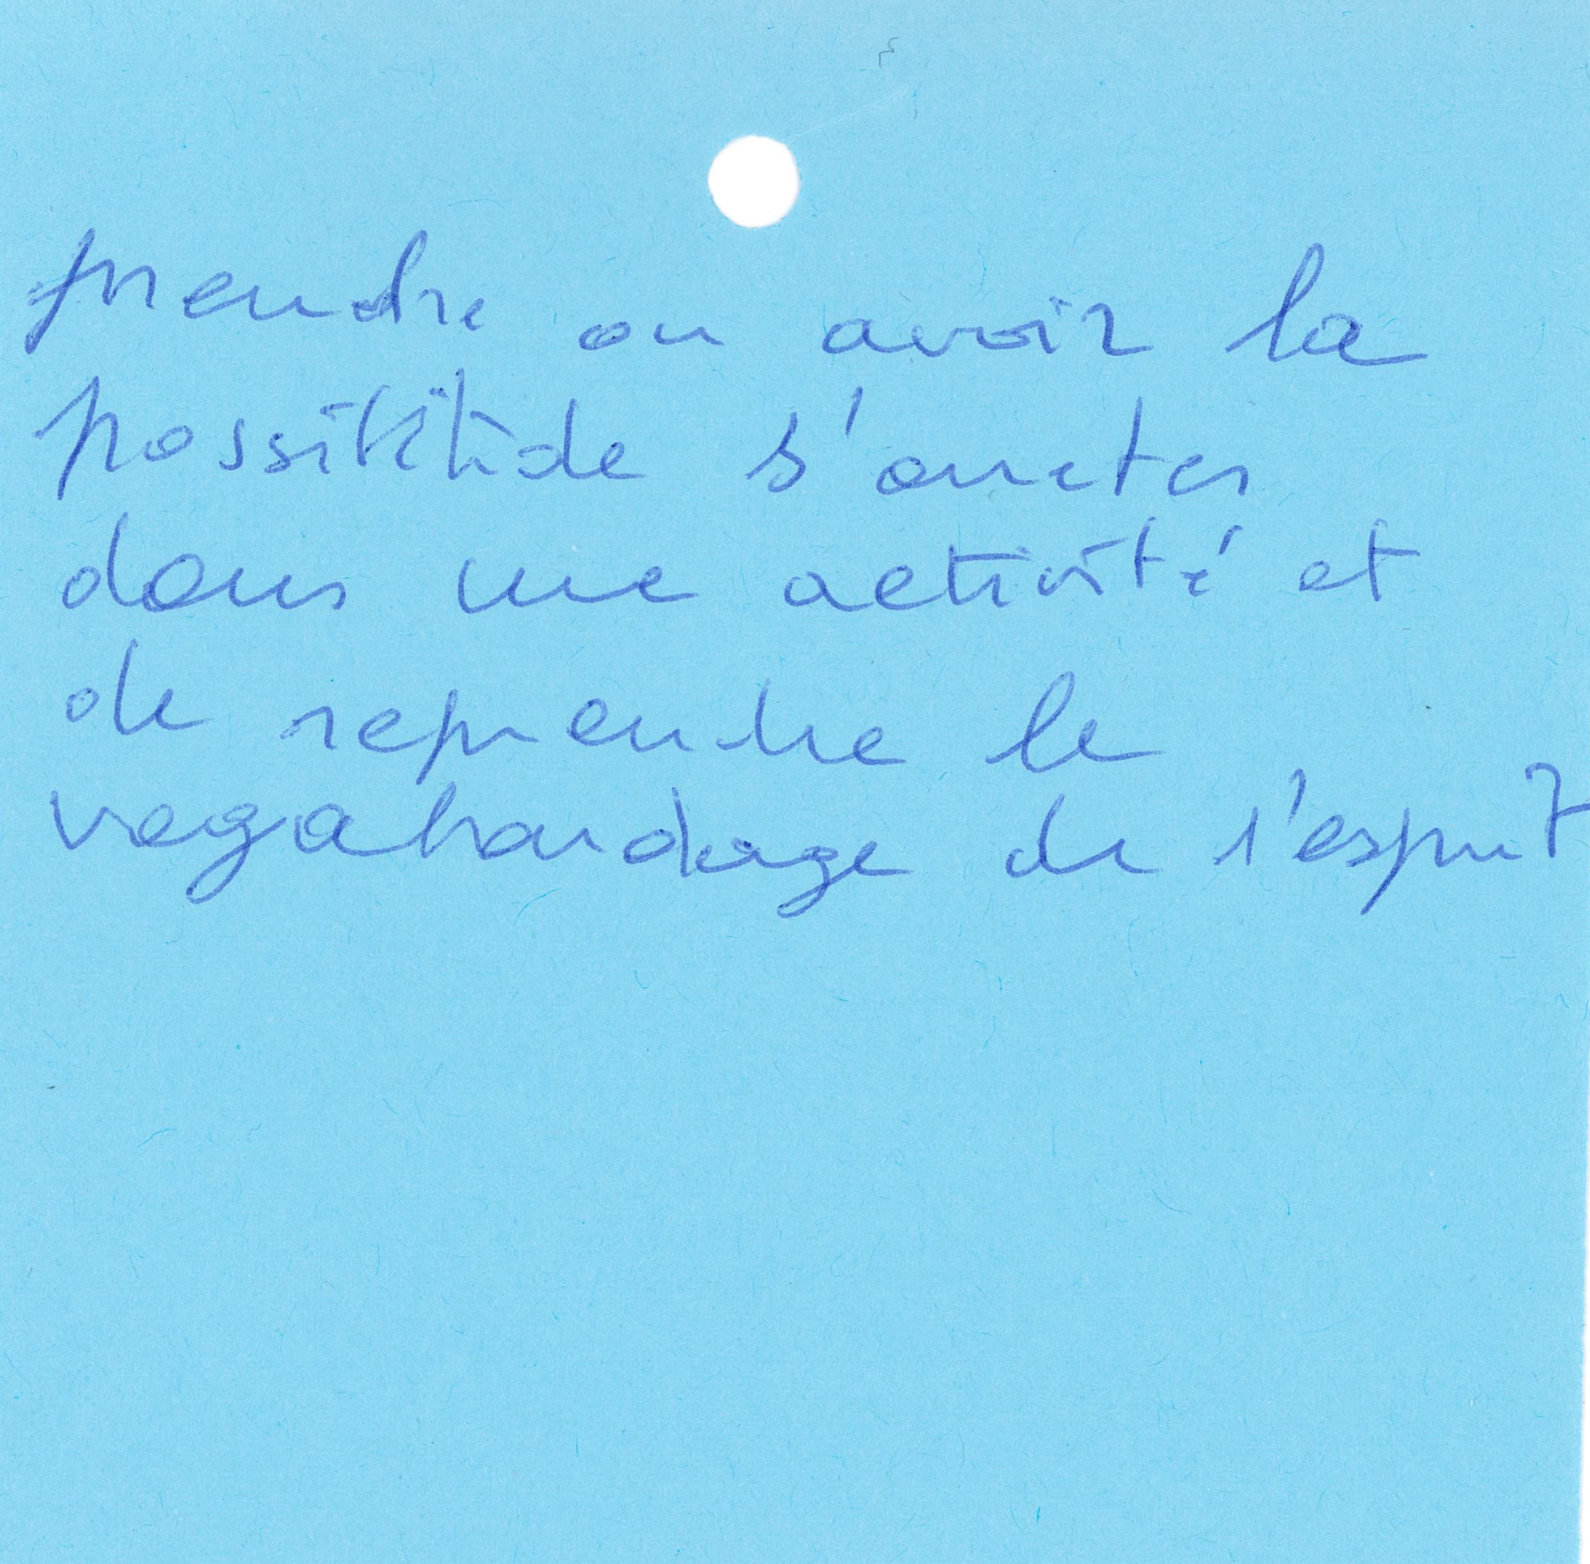 prendre ou avoir la
possibilité de s'arreter
dans une activité et
de reprendre le
vagabondage de l'esprit